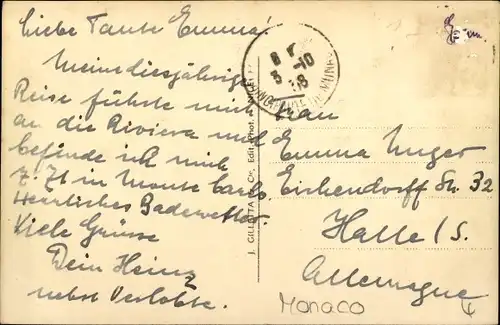 Liebe Tante Emma!
Meine diesjährige
Reise führte mich
an die Riviera und
befinde ich mich
z. Zt in Monte Carlo.
Herrliches Badewetter.
Viele Grüsse
Dein Heinz
nebst Verlobte.
J. GILLETTA & Cie, Edit. Phot.
5 -10
38
Frau
Emma Unger
Eichendorff Str. 32
Halle/S.
Allemagne
Monaco